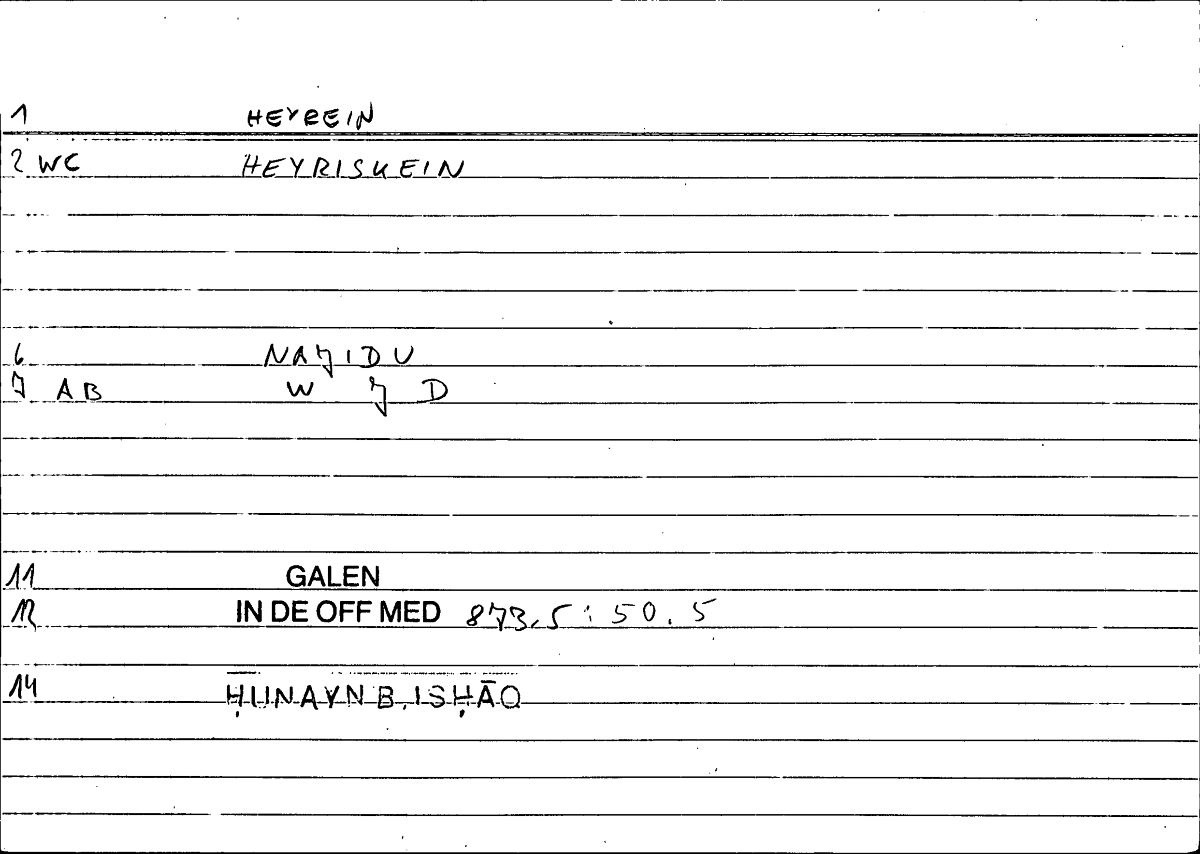 1 HEYREIN
2 WC HEYRISKEIN
6 NAJIDU
7 AB W J D
11 GALEN
12 IN DE OFF MED 873,5 : 50.5
14 ḤUNAYN B. ISḤĀQ